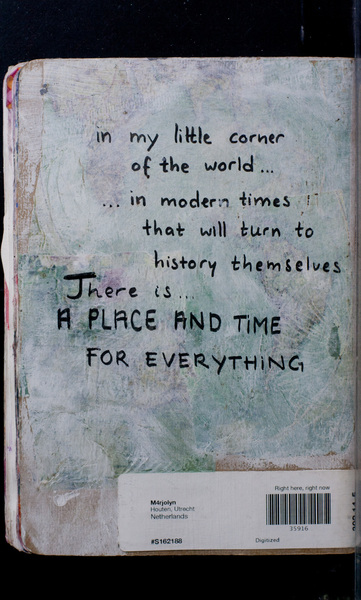 in my little corner
of the world...
... in modern times
that will turn to
history themselves
There is...
A PLACE AND TIME
FOR EVERYTHING
Right here, right now
M4rjolyn
Houten, Utrecht
Netherlands
35916
#S162188
Digitized